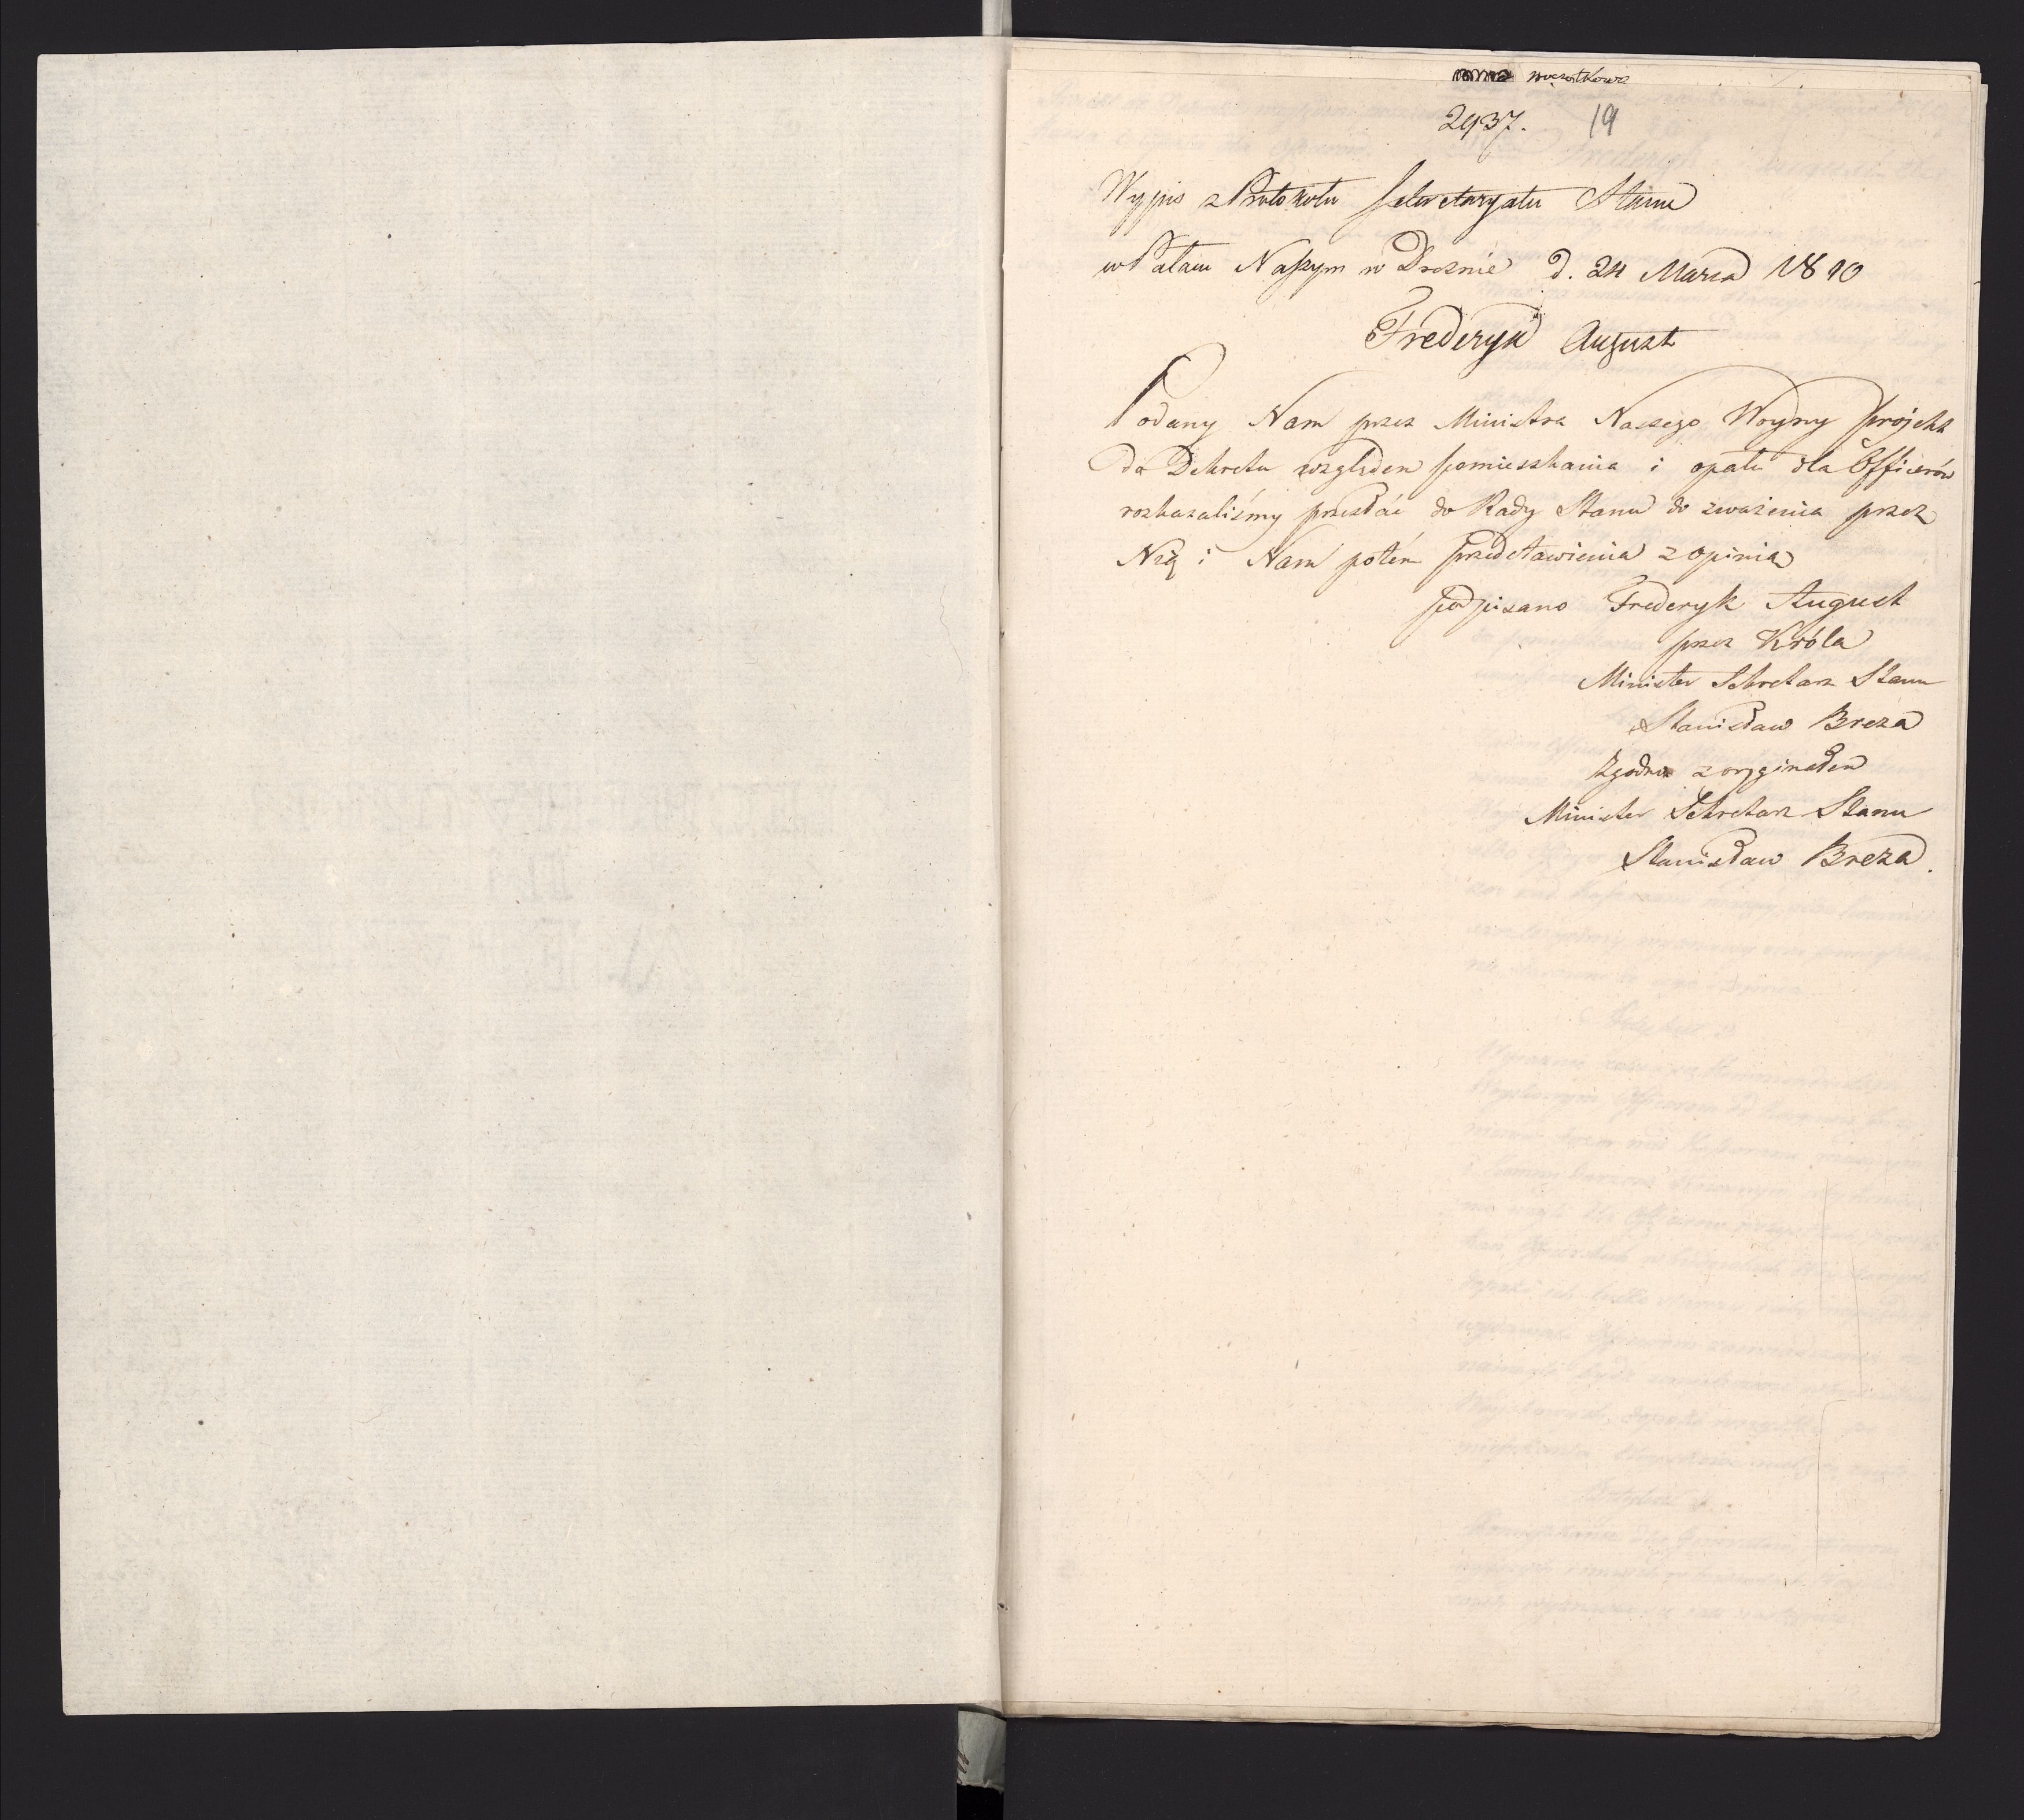 2937. 19
Wypis z Protokołu Sekretaryatu Stanu
w Pałacu Naszym w Dreznie d. 24 Marca 1810
Frederyk August
Podany Nam przez Ministra Naszego Woyny projekt
do Dekretu względem pomieszkania i opału dla Officerów
rozkazaliśmy przesłać do Rady Stanu do zważenia przez
Nią i Nam potem przedstawienia z opinią
podpisano Frederyk August
przez Króla
Minister Sekretarz Stanu
Stanisław Breza
Zgodno z oryginałem
Minister Sekretarz Stanu
Stanisław Breza.